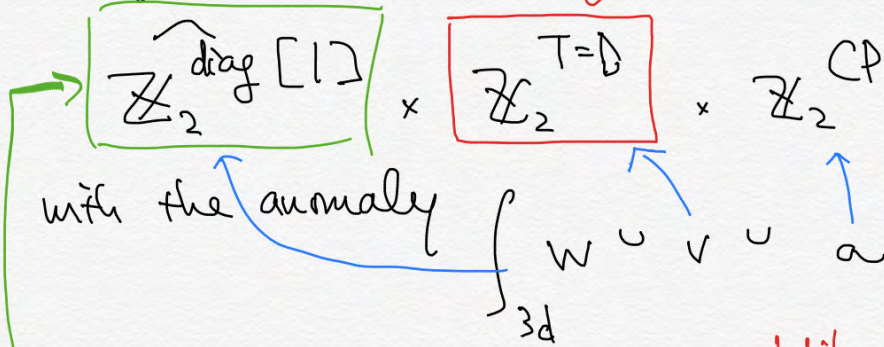 ℤ̂₂^diag [1] × ℤ₂^{T=D} × ℤ₂^CP
with the anomaly ∫_{3d} w ∪ v ∪ a